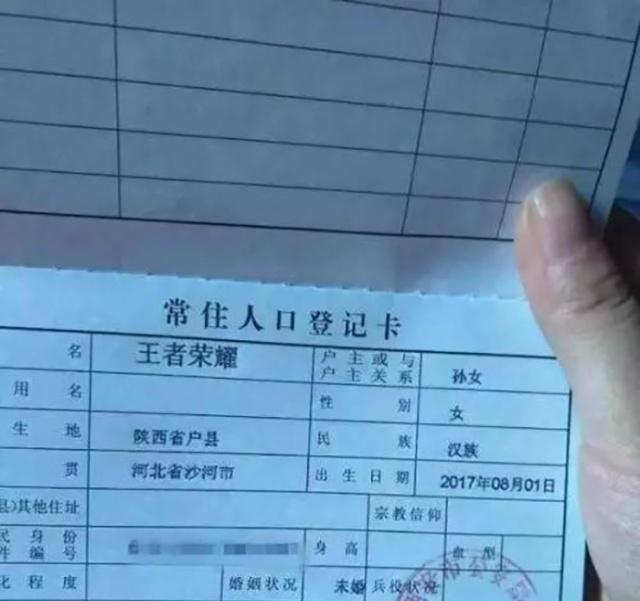 常住人口登记卡
名 王者荣耀 户主或与户主关系 孙女
用名 性别 女
生地 陕西省户县 民族 汉族
贯 河北省沙河市 出生日期 2017年08月01日
县)其他住址 宗教信仰
民身份件编号 6 身高 血型
化程度 婚姻状况 未婚 兵役状况
市公安局